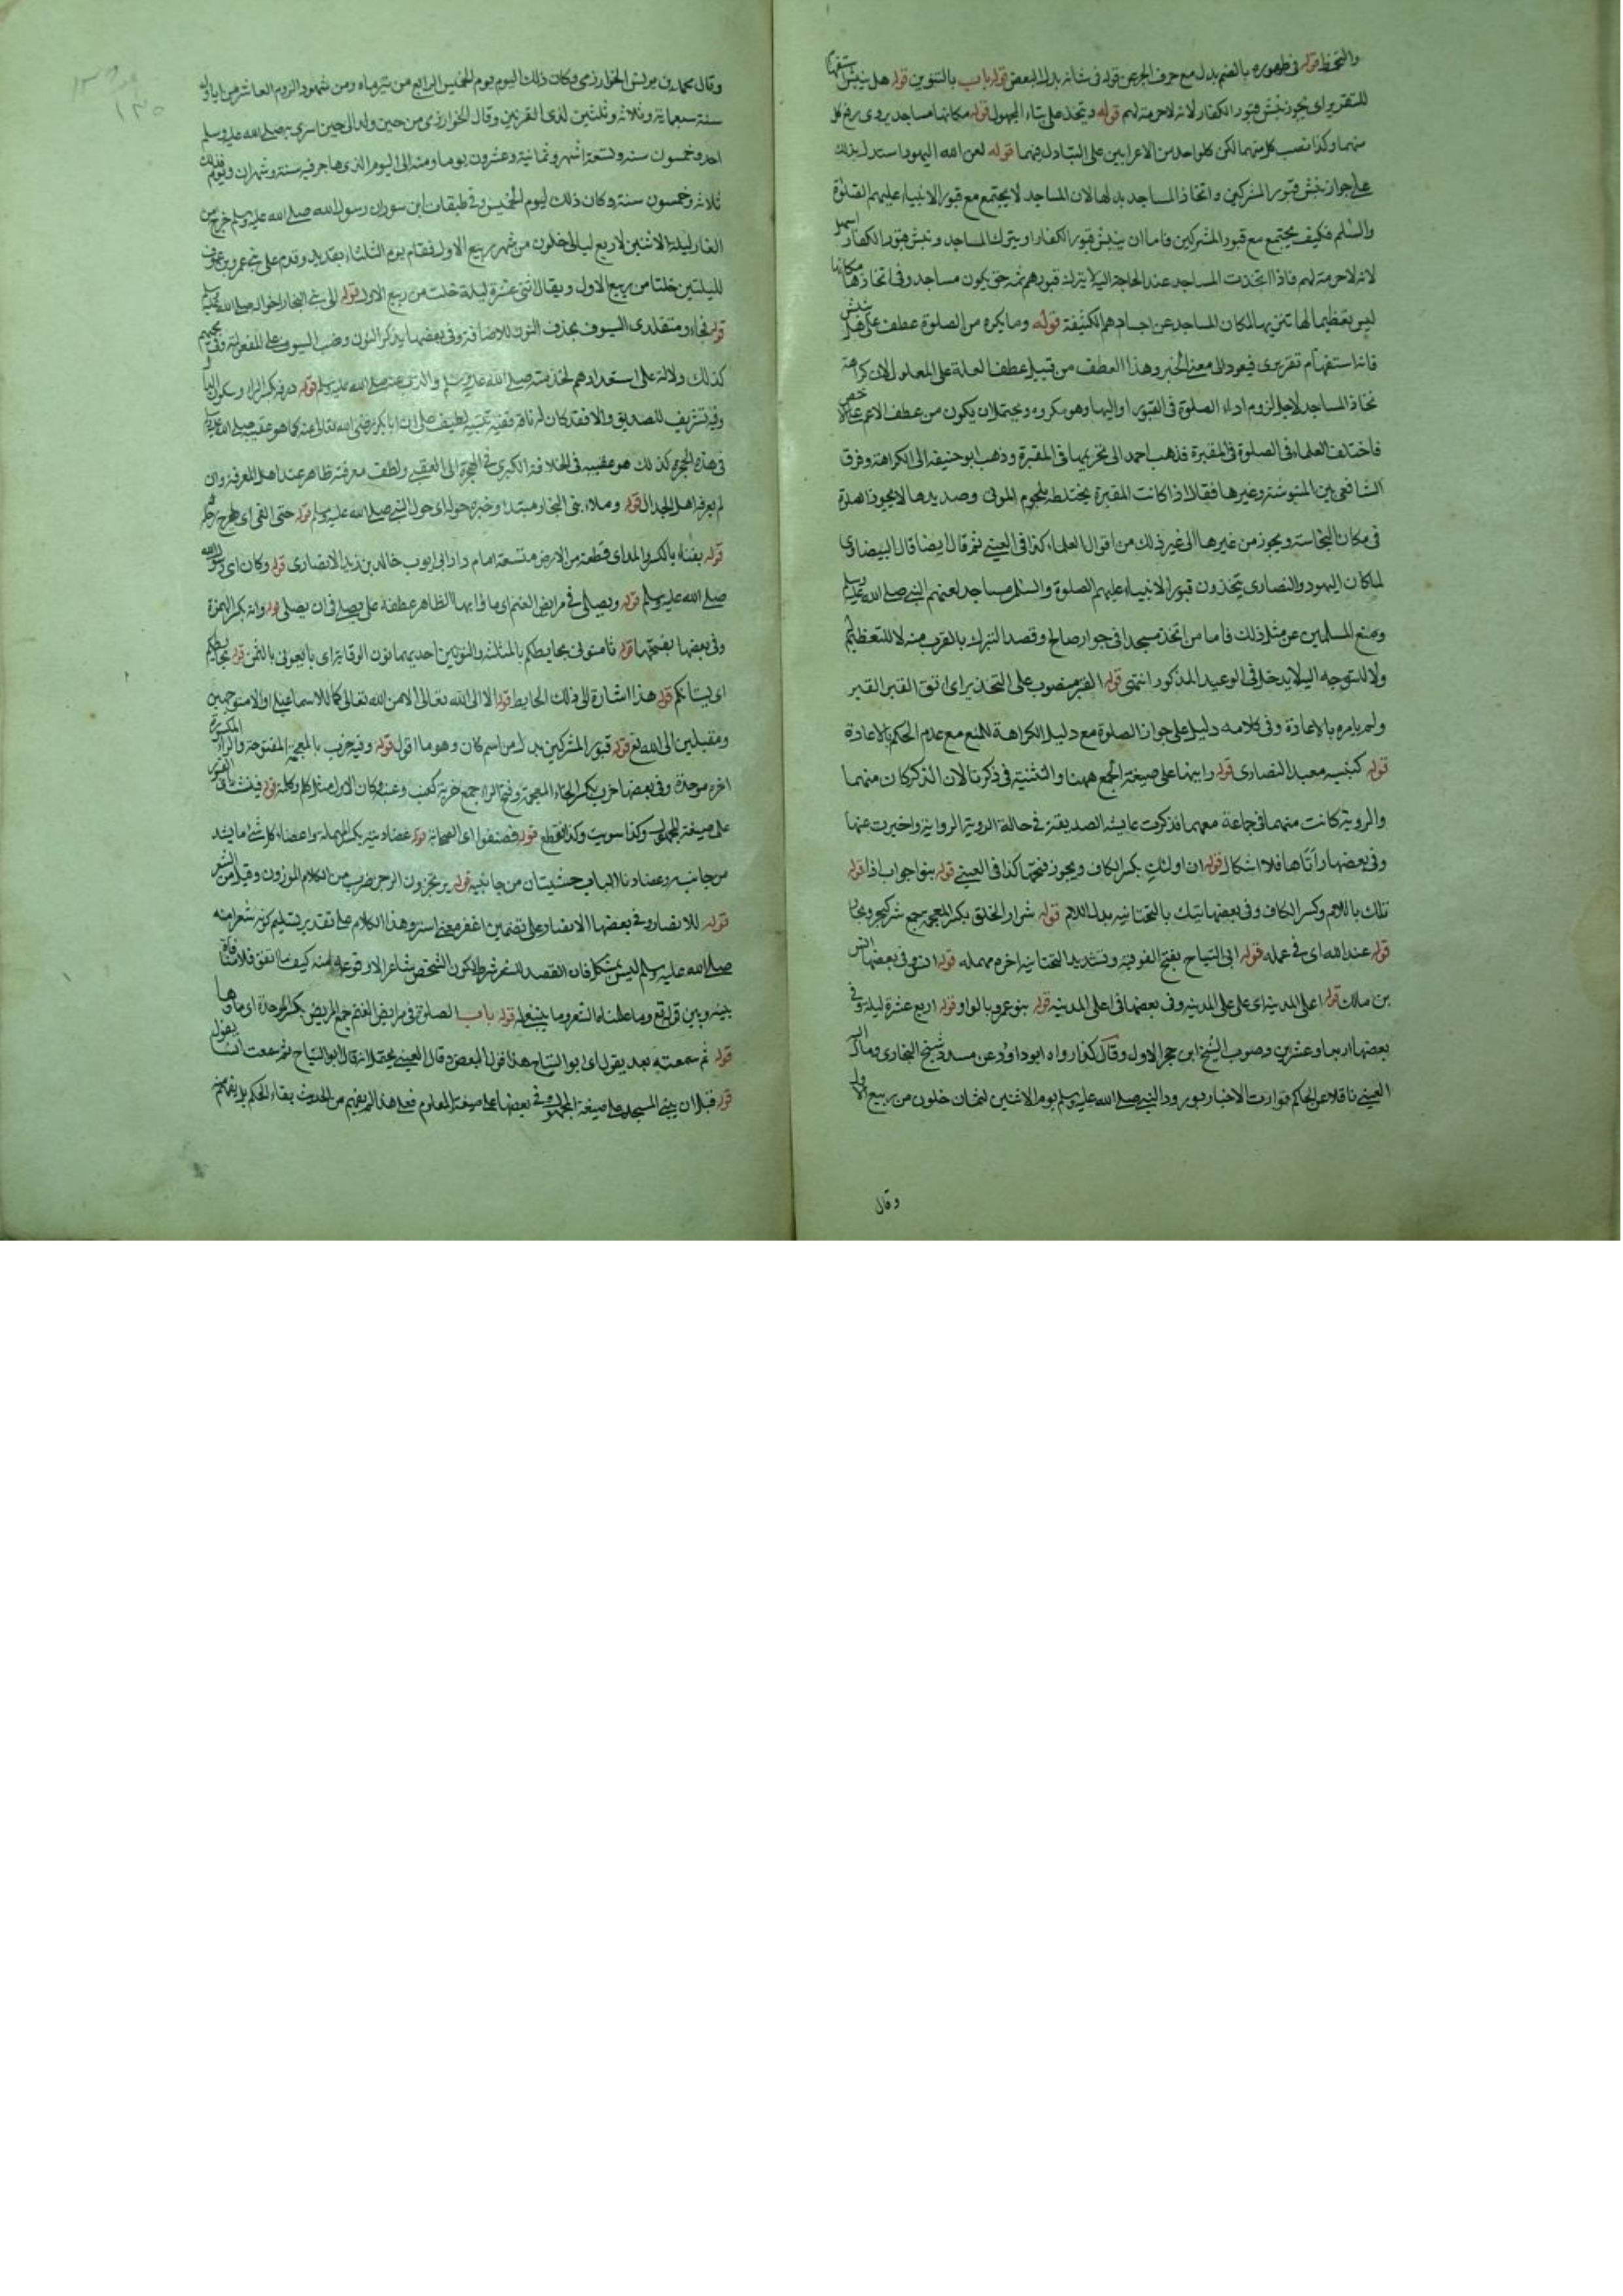 والتحفظ قوله في طهوره بالضم بدل مع حرف الجر عن قوله في شانه بدل البعض قوله باب بالتنوين قوله هل ينبش استفهام
للتقرير اى يجوز نبش قبور الكفار لانه لا حرمة لهم قوله ويتخذ على بناء المجهول قوله مكانها مساجد يروى برفع كل
منهما وكذا نصب كل منهما لكن كلواحد من الاعرابين على التبادل فيهما قوله لعن الله اليهود استدل بذلك
على جواز نبش قبور المشركين واتخاذ المساجد بدلها لان المساجد لا يجتمع مع قبور الانبياء عليهم الصلوة
والسلم فكيف يجتمع مع قبور المشركين فاما ان ينبش قبور الكفار او يترك المساجد ونبش قبور الكفار اسهل
لانه لا حرمة لهم فاذا اتخذت المساجد عند الحاجة اليه لا يترك قبورهم ثمه حتى يكون مساجد وفي اتخاذها مكانها
ليس تعظيما لها تنزيها لمكان المساجد عن اجسادهم الكثيفة قوله وما يكره من الصلوة عطف على هل ينبش
فانه استفهام تقريرى فيعود الى معنى الخبر وهذا العطف من قبيل عطف العلة على المعلول لان كراهة
تخاذ المساجد لاجل لزوم اداء الصلوة في القبور او اليها وهو مكروه ويحتمل ان يكون من عطف الاعم على الاخص
فاختلف العلماء في الصلوة في المقبرة فذهب احمد الى تحريمها في المقبرة وذهب ابو حنيفة الى الكراهة وفرق
الشافعى بين المنبوشة وغيرها فقال اذا كانت المقبرة يختلطه بلحوم الموتى وصديدها لا يجوز الصلوة
في مكان النجاسة ويجوز من غيرها الى غير ذلك من اقوال العلماء كذا في العينى ثم قال ايضا قال البيضاوى
لما كان اليهود والنصارى يتخذون قبور الانبياء عليهم الصلوة والسلم مساجد لعنهم النبى صلى الله عليه وسلم
ومنع المسلمين عن مثل ذلك فاما من اتخذ مسجدا في جوار صالح وقصد التبرك بالقرب منه لا للتعظيم له
ولا للتوجه اليه لا يدخل في الوعيد المذكور انتهى قوله القبر منصوب على التحذير اى اتق القبر القبر
ولم يامره بالاعادة وفى كلامه دليل على جواز الصلوة مع دليل الكراهة للمنع مع عدم الحكم بالاعادة
قوله كنيسه معبد النصارى قوله راينها على صيغة الجمع ههنا والتثنية في ذكرتا لان الذكر كان منهما
والروية كانت منهما في جماعة معهما فذكرت عايشه الصديقة في حالة الروية الرواية واخبرت عنها
وفى بعضها راتاها فلا اشكال قوله ان اولئك بكسر الكاف ويجوز فتحها كذا في العينى قوله بنوا جواب اذا قوله
تلك باللام وكسر الكاف وفى بعضها تيك بالتحتانيه بدل اللام قوله شرار الخلق بكسر المعجمه جمع شر كبحر وبحار
قوله عند الله اى في عمله قوله ابى التياح بفتح الفوقية وتشديد التحتانية اخره مهمله قوله انس وفى بعضها انس
بن مالك قوله اعلى المدينة اى على على المدينه وفى بعضها في اعلى المدينه قوله بنو عمرو بالواو قوله اربع عشرة ليله وفى
بعضها اربعا وعشرين وصوب الشيخ ابن حجر الاول وقال كذا رواه ابو داود عن مسدد شيخ البخارى وقال
العينى ناقلا عن الحاكم تواترت الاخبار بورود النبى صلى الله عليه وسلم يوم الاثنين لثمان خلون من ربيع الاول
وقال
وقال محمد بن موسى الخوارزمى وكان ذلك اليوم يوم الخميس الرابع من تيرماه ومن شهور الروم العاشر من ايلول
سنة سبعماية وثلاثة وثلثين لذى القرنين وقال الخوارزمى من حين ولد الى حين اسرى به صلى الله عليه وسلم
احد وخمسون سنه وتسعة اشهر وثمانية وعشرون يوما ومنه الى اليوم الذى هاجر فيه سنة وشهران ويوم فذلك
ثلاث وخمسون سنة وكان ذلك ليوم الخميس وفى طبقات ابن سعد ان رسول الله صلى الله عليه وسلم خرج من
الغار ليلة الاثنين لاربع ليالى خلون من شهر ربيع الاول فقام يوم الثلثاء بقديد وقدم على بنى عمرو بن عوف
لليلتين خلتا من ربيع الاول ويقال اثنى عشرة ليلة خلت من ربيع الاول قوله الى بنى النجار اخوال صلى الله عليه وسلم
قوله نجاءو متقلدى السيوف بحذف النون للاضافة وفى بعضها بذكر النون ونصب السيوف على المفعولية وفى
كذلك دلالة على استعدادهم لخدمته صلى الله عليه وسلم والذب عنه صلى الله عليه وسلم قوله ردفه بكسر الراء وسكون الدال
وفيه تشريف للصديق والا فقد كان له ناقة ففيه تنبيه لطيف على ان ابا بكر رضى الله تعالى عنه كما هو عقيبه صلى الله عليه وسلم
في هذه الهجرة كذلك هو عقيبه في الخلافة الكبرى في الهجرة الى العقبى ولطف معرفته ظاهر عند اهل المعرفة وان
لم يعرف اهل الجدال قوله وملاء بنى النجار مبتدا وخبره حوله اى حول النبى صلى الله عليه وسلم قوله حتى القى اى طرح رحله
قوله بفناء بالكسر والمد اى قطعة من الارض متسعة امام دار ابى ايوب خالد بن زيد الانصارى قوله وكان اى رسول الله
صلى الله عليه وسلم قوله ويصلى في مرابض الغنم اى ماواها الظاهر عطفه على يصلى في ان يصلى قوله وانه بكسر الهمزة
وفى بعضها بفتحها قوله ثامنونى بحايطكم بالمثلثة والنونين احديهما نون الوقاية اى بايعونى بالثمن قوله بحايطكم
اى بستانكم قوله هذا اشارة الى ذلك الحايط قوله الا الى الله تعالى الا من الله تعالى كما للاسماعيلى او الا متوجهين
ومقبلين الى الله تع قوله قبور المشركين بدل من اسم كان وهو ما اقول قوله وفيه خرب بالمعجمة المفتوحة والراء المكسورة
اخره موحدة وفى بعضها خرب بكسر الخاء المعجمة وفتح الراء جمع خربة كعنب وعنبة وكان الاول مثل كلم وكلمة قوله فنبشت القبور
على صيغة المجهول وكذا سويت وكذا فقطع قوله فصفوا اى الصحابة قوله عضادتيه بكسر المهملة واعضاد كل شئ ما يشد
من جانبيه وعضادتا الباب خشبتان من جانبيه قوله يرتجزون الرجز ضرب من الكلام الموزون وقيل من الشعر
قوله للانصار وفى بعضها الانصار على تضمين اغفر معنى استر وهذا الكلام على تقدير تسليم كونه شعرا منه
صلى الله عليه وسلم ليس بمشكل فان القصد للشعر شرط لكون الشخص شاعرا لا وقوعه منه كيف ما اتفق فلا منافاة
بينه وبين قوله تع وما علمناه الشعر وما ينبغى له قوله باب الصلوة في مرابض الغنم جمع المربض بكسر الموحدة اى ماواها
قوله ثم سمعته بعد يقول اى ابو التياح هذا قول البعض وقال العينى يحتمل انه قال ابو التياح ثم سمعت انسا يقول
قوله قبل ان يبنى المسجد على صيغة المجهول وفى بعضها على صيغة المعلوم فعلى هذا لم يفهم من الحديث بقاء الحكم بل يفهم